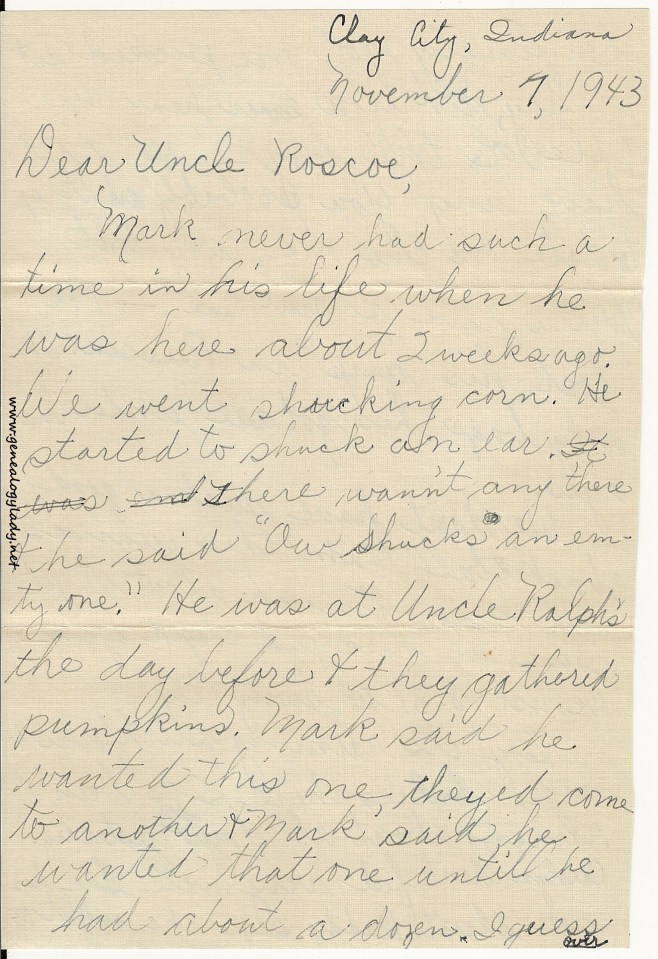 Clay City, Indiana
November 7, 1943
Dear Uncle Roscoe,
Mark never had such a
time in his life when he
was here about 2 weeks ago.
We went shucking corn. He
started to shuck an ear. It
was and there wann't any there
& he said "Ow Shucks an em-
ty one." He was at Uncle Ralph's
the day before & they gathered
pumpkins. Mark said he
wanted this one, theyed come
to another & Mark said he
wanted that one until he
had about a dozen. I guess
over
www.genealogylady.net